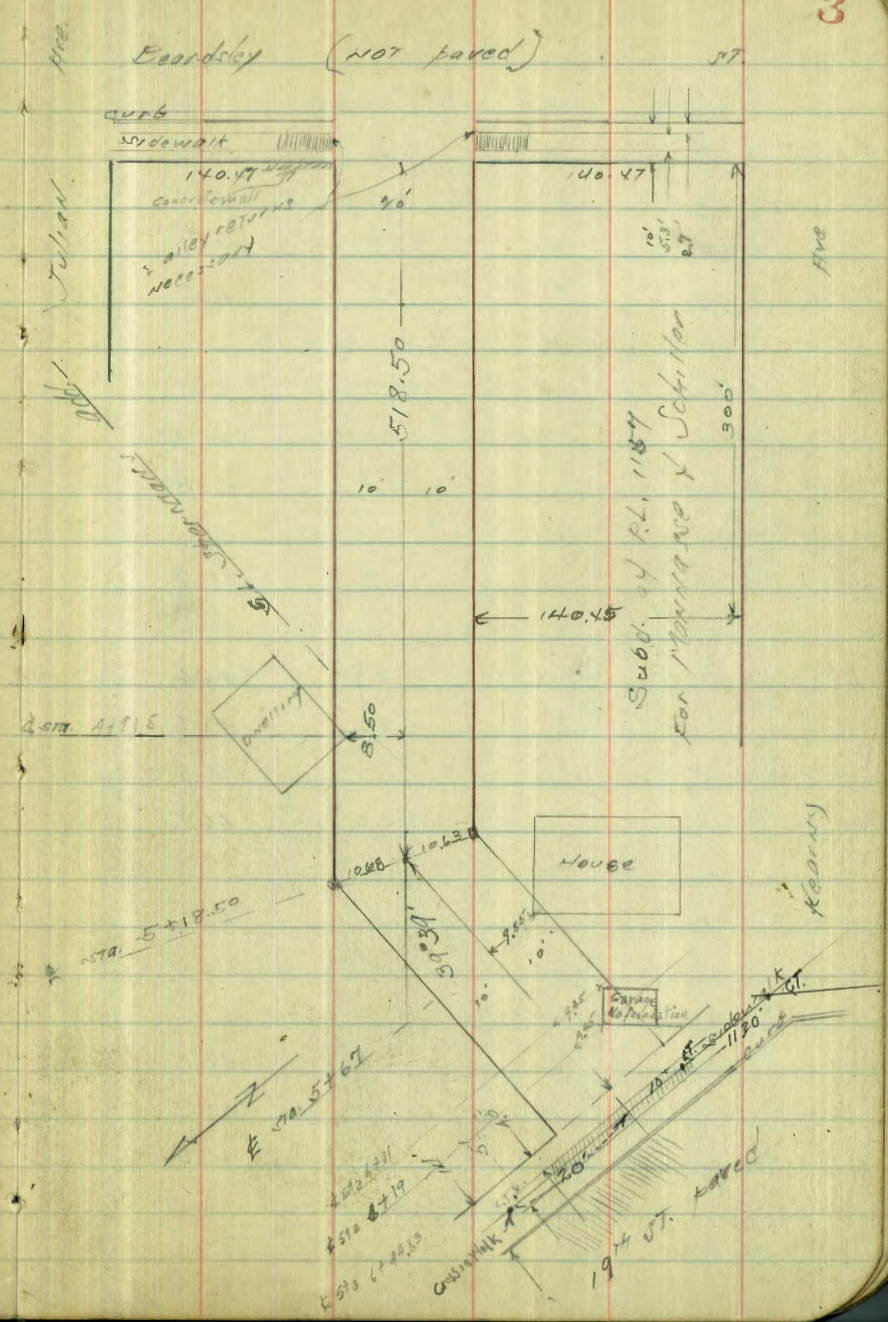 3
Ave.
Beardsley (NOT paved) ST.
curb
sidewalk
140.47
concrete wall
2 alley returns
necessary
20'
140.47
10'
5.3'
2.7
Julian
Ave
518.50
10' 10'
300'
Subd. of P.L. 1157
For Mannasse & Schiller
Sherman's
140.45
Dwelling
8.50
10.68
10.63
House
Kearny
Sta. 5+18.50
39°39'
9.85
10'
10'
9.85
Garage
No foundation
sidewalk
ST.
11.20'
10'
curb
Sta. 5+67
Sta 6+11
Sta 6+19
Sta 6+44.83
20'
Cross walk
19th ST. paved